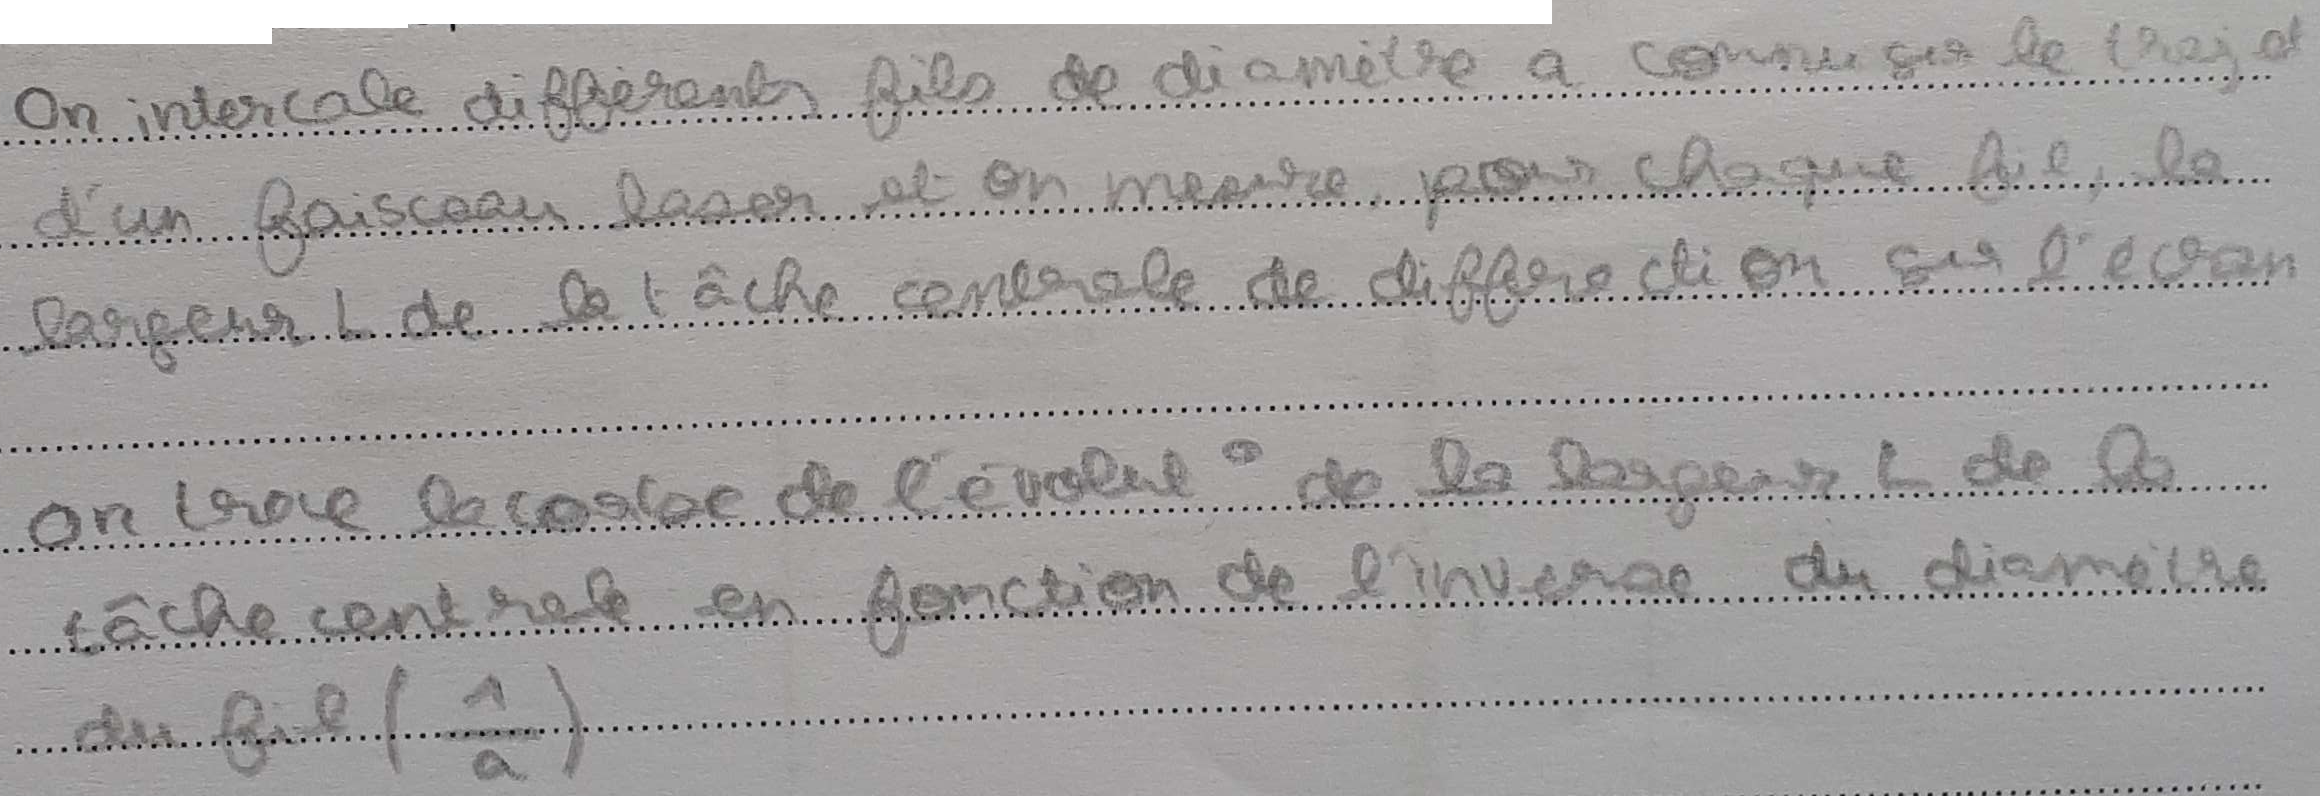 On intercale différents fils de diamètre a connu sur le trajet
d'un faisceau laser et on mesure, pour chaque fil, la
largeur L de la tâche centrale de diffraction sur l'écran
on trace la courbe de l'évolut° de la largeur L de la
tâche centrale en fonction de l'inverse du diamètre
du fil (1/a)